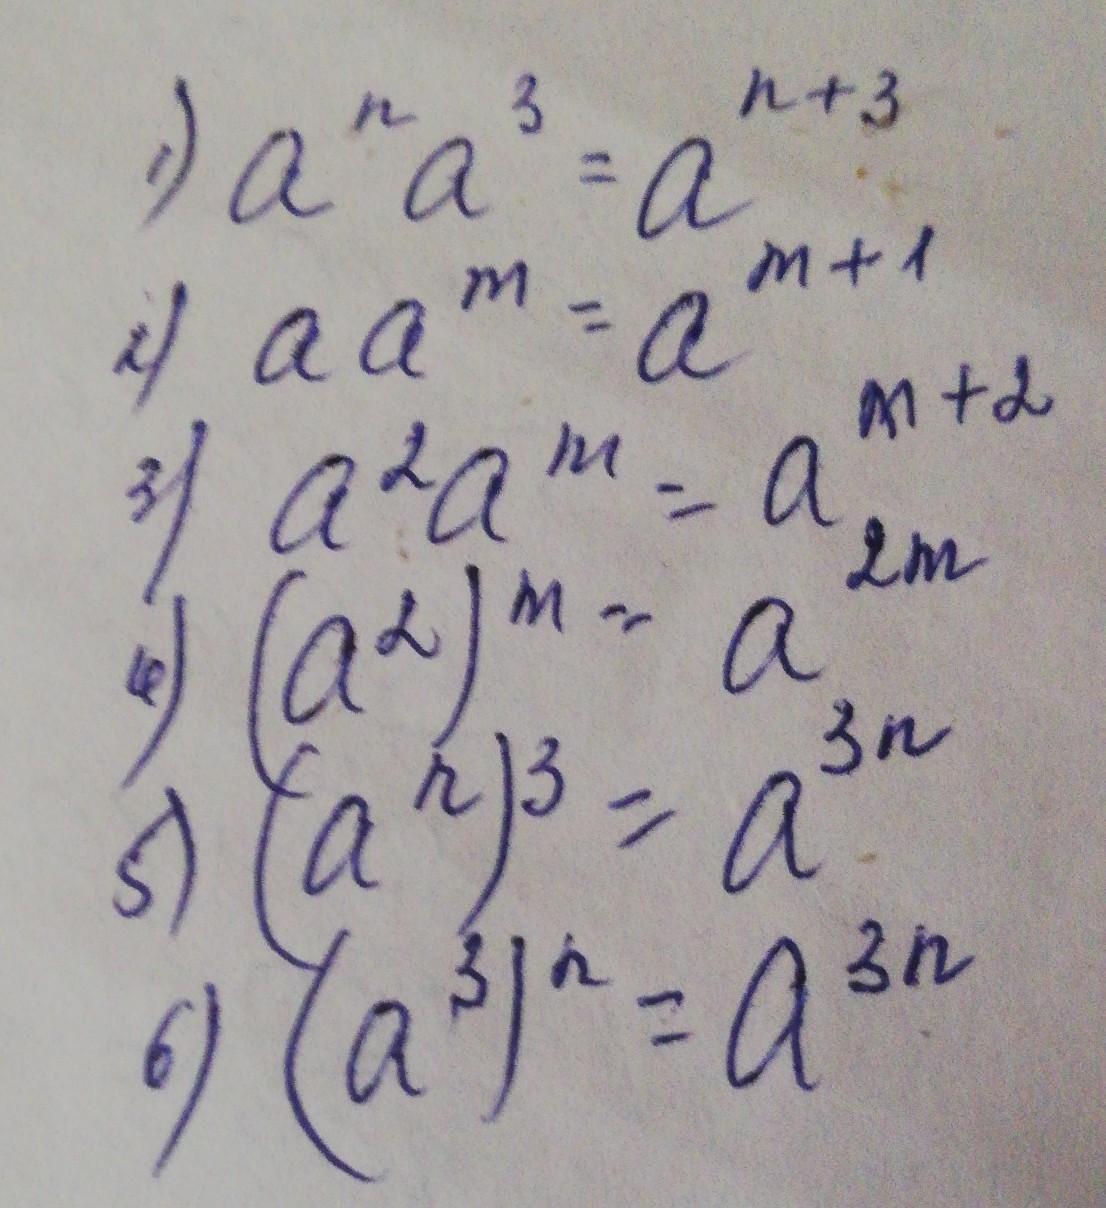 1) aⁿ a³ = aⁿ⁺³
2) a aᵐ = aᵐ⁺¹
3) a² aᵐ = aᵐ⁺²
4) (a²)ᵐ = a²ᵐ
5) (aⁿ)³ = a³ⁿ
6) (a³)ⁿ = a³ⁿ